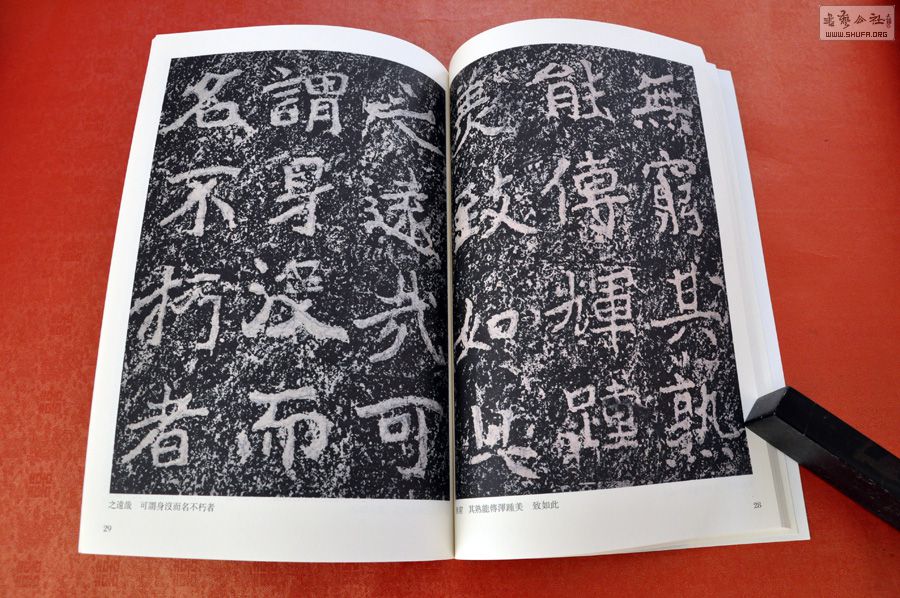 無窮其孰
能傳輝踵
美致如此
之遠哉可
謂身沒而
名不朽者
其熟能傳渾踵美　致如此
28
之遠哉　可謂身沒而名不朽者
29
WWW.SHUFA.ORG